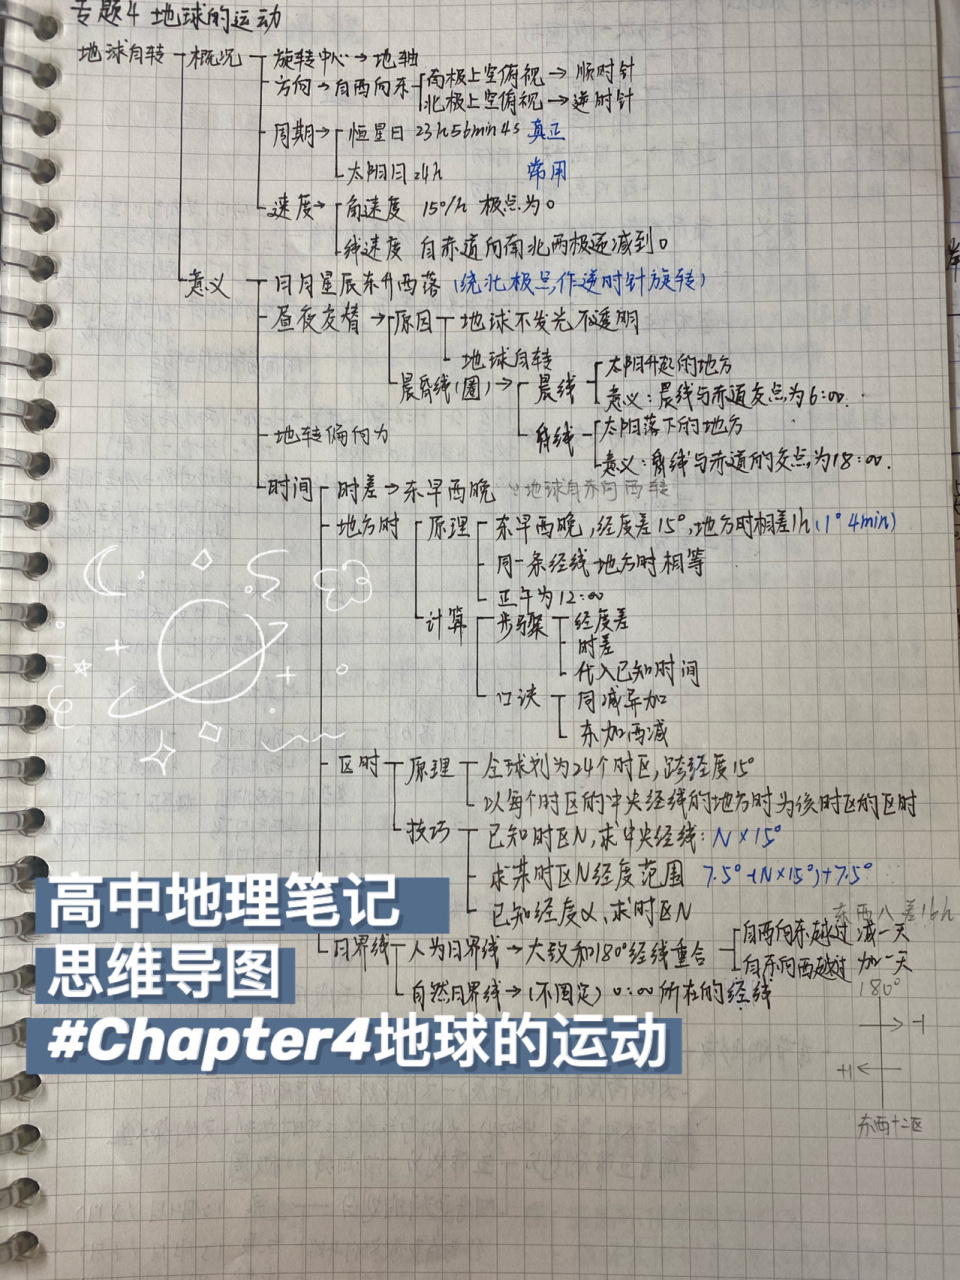 专题4 地球的运动
地球自转 概况 旋转中心→地轴
方向→自西向东 南极上空俯视→顺时针
北极上空俯视→逆时针
周期→ 恒星日 23h56min4s 真正
太阳日 24h 常用
速度→ 角速度 15°/h 极点为0
线速度 自赤道向南北两极递减到0
意义 日月星辰东升西落 (绕北极点作逆时针旋转)
昼夜交替→ 原因 地球不发光不透明
地球自转
晨昏线(圈)→ 晨线 太阳升起的地方
意义:晨线与赤道交点为6:00.
昏线 太阳落下的地方
意义:昏线与赤道的交点,为18:00.
地转偏向力
时间 时差→东早西晚 ∵地球自东向西转
地方时 原理 东早西晚,经度差15°,地方时相差1h(1° 4min)
同一条经线地方时相等
正午为12:00
计算 步骤 经度差
时差
代入已知时间
口诀 同减异加
东加西减
区时 原理 全球划为24个时区,跨经度15°
以每个时区的中央经线的地方时为该时区的区时
技巧 已知时区N,求中央经线: N×15°
求某时区N经度范围 7.5°-(N×15°)+7.5°
已知经度α,求时区N
东西八差16h
日界线 人为日界线→大致和180°经线重合 自西向东越过 减一天
自东向西越过 加一天
自然日界线→(不固定) 0:00所在的经线
180°
→-1
+1←
东西十二区
高中地理笔记
思维导图
#Chapter4地球的运动